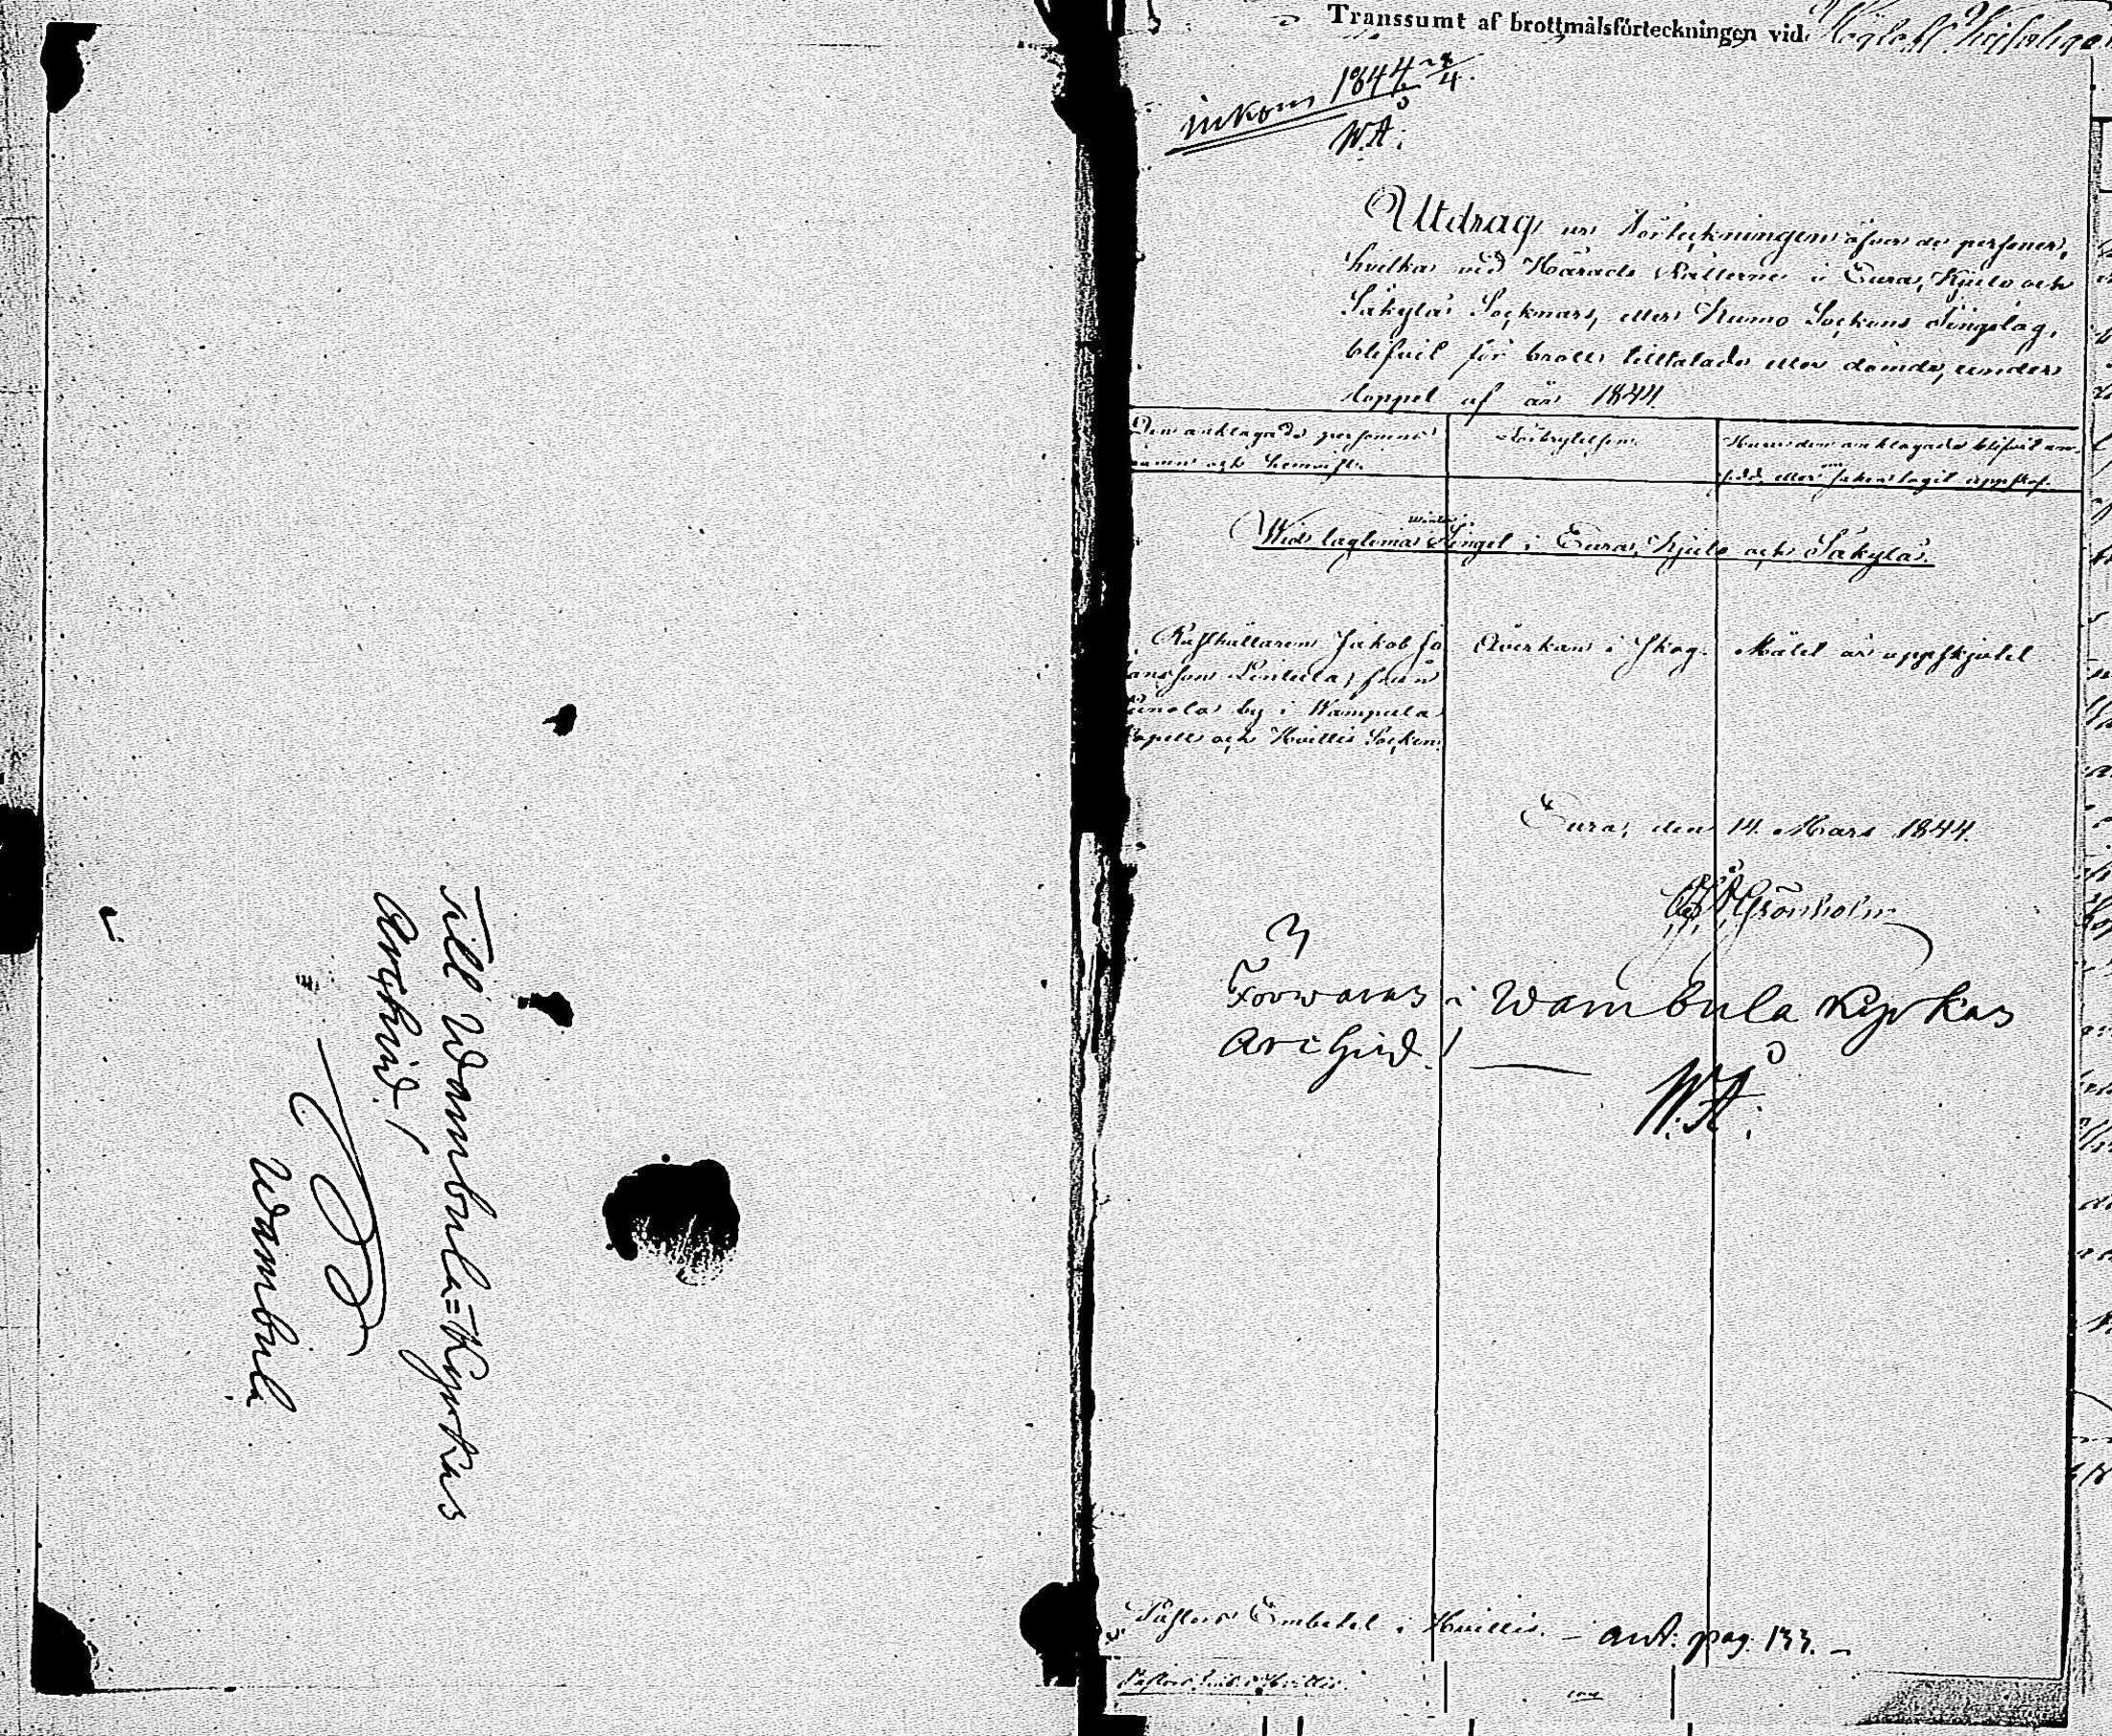 Till Wambula=Kyrkas
Archiv!
Wambula
Transsumt af brottmålsförteckningen vid
inkom 1844 3/4.
W.Å:
Utdrag ur Förteckningen öfver de personer,
hvilka vid Härads Rätterne i Eura, Kjulo och
Säkylä Socknars, eller Kumo Sockens Tingslag,
blifvit för brott tilltalade eller dömde, under
loppet af år 1844.
Den anklagade personens
namn och hemvist.
Förbrytelsen.
Huru den anklagade blifvit an-
sedd, eller om saken tagit uppskof.
Wid lagtima Winter Tinget i Eura, Kjulo och Säkylä.
Rusthållaren Jakob Jo
hansson Lintula, från
by i Wampula
Capell och Hvittis Socken.
Åverkan i skog.
Målet är uppskjutet
Eura, den 14 Mars 1844.
Grönholm
Förwaras i Wambula Kyrkas
Archiv!
W.Å:
Pastors Embetet i Hvittis. – ant: pag. 133. –
Pastors Emb. i Hvittis.